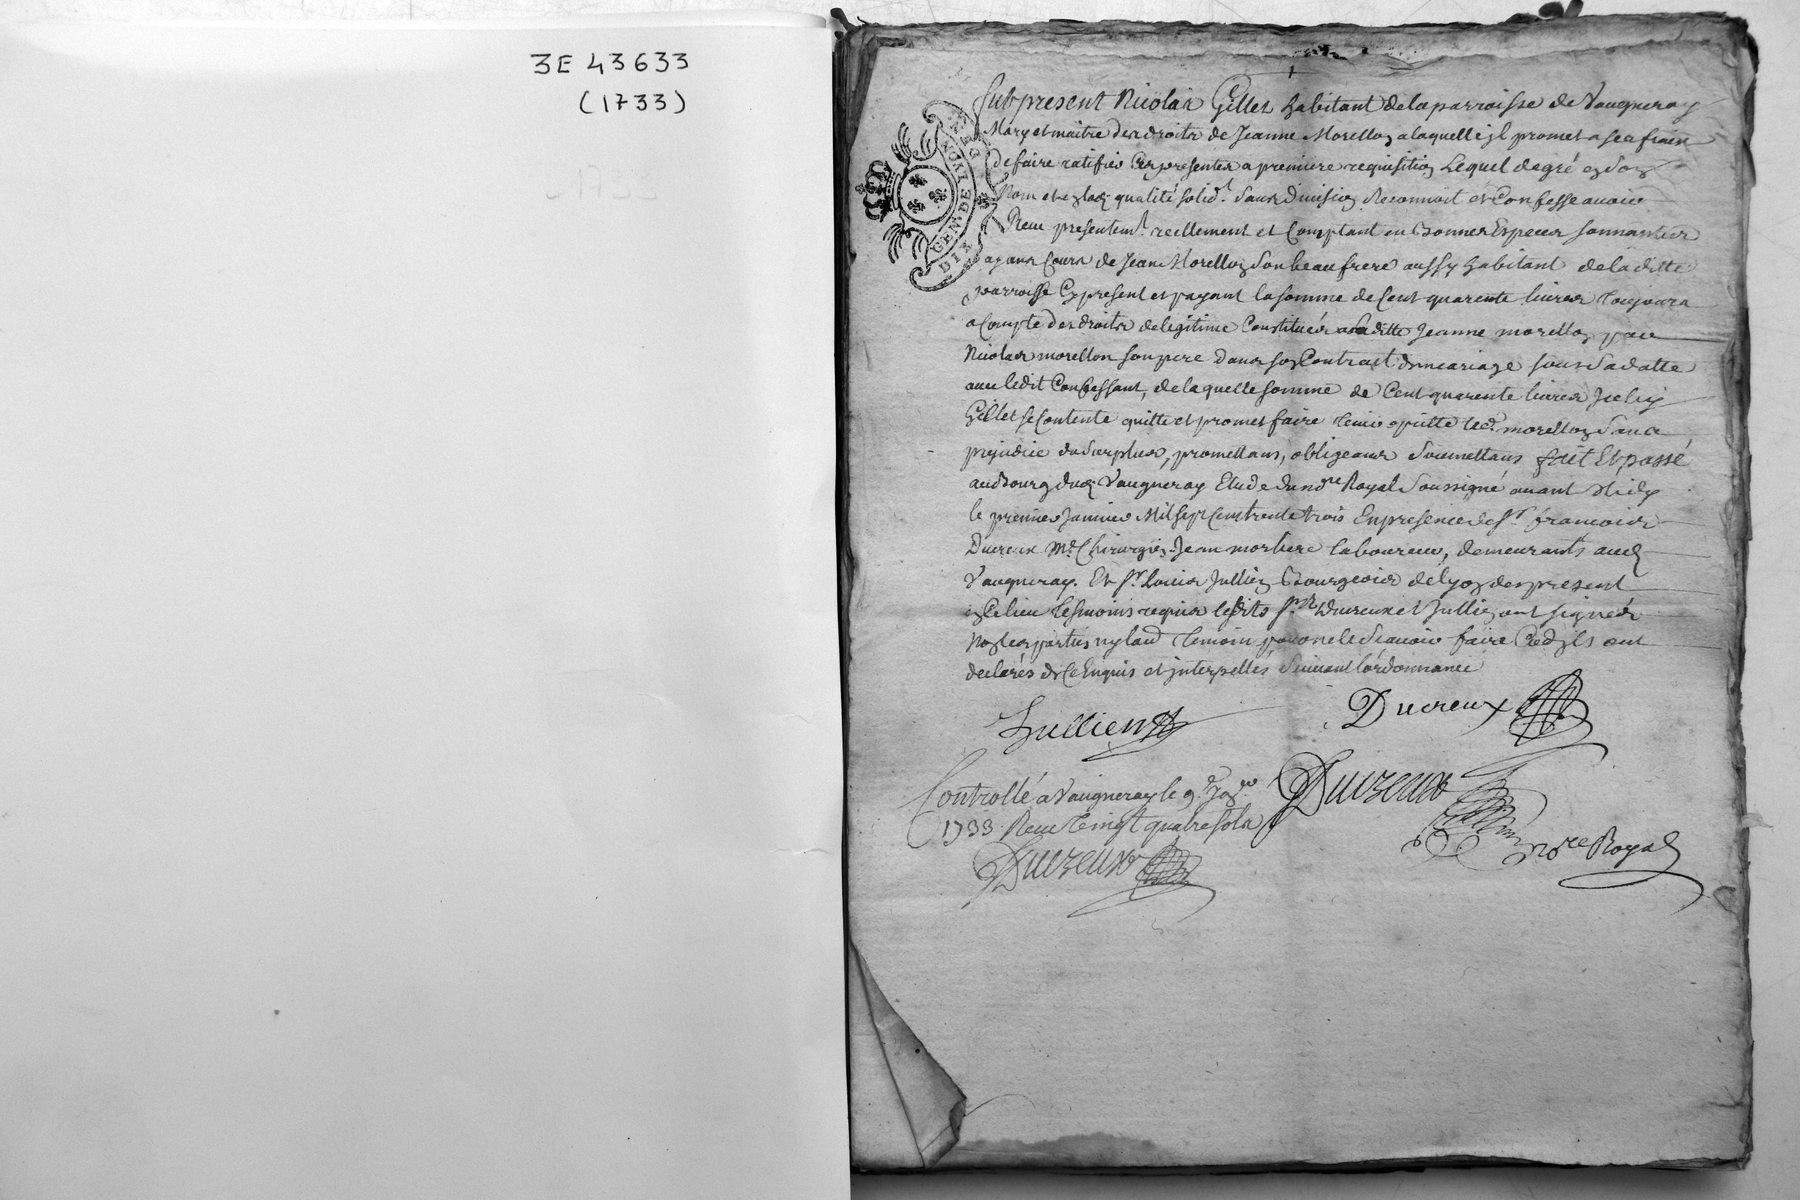 3E 43633
(1733)
GEN. DE LYON
DIX DEN
Fut present Nicolas Gillet habitant de la parroisse de Vaugneray
Mary et maitre des droits de Jeanne Morellon a laquelle jl promet a ses frais
de faire ratifier Ces presentes a premiere requisition Lequel de gré en son
Nom et en lad. qualité solid.t sans Division Reconnoit et Confesse avoir
Receu presentem.t reellement et Comptant en Bonnes Especes sonnantes
ayans Cours de Jean Morellon son beaufrere aussy habitant de la ditte
parroisse Cy present et payant la somme de Cent quarente livres toujours
a Compte des droits de legitime Constitués a laditte Jeanne morellon par
Nicolas morellon son pere dans son Contract de mariage sous sa datte
avec ledit Confessant, de laquelle somme de Cent quarente livres Jceluy
Gillet se Contente quitte et promet faire tenir quitte led. morellon sans
prejudice du surplus, promettans, obligeans soumettans fait Et passé
au Bourg dud. Vaugneray Etude du no.re Royal soussigné avant Midy
le premier Janvier Mil sept Cens trente trois En presence de s.r francois
Ducreux M.e Chirurgien Jean mortiere laboureur, demeurants aud.
Vaugneray. Et s.r Louis Jullien Bourgeois de lyon de present
en Ce lieu tesmoins requis lesdits s.rs Ducreux et Jullien ont signés
Non les parties ny laud temoin pour ne le scavoir faire Ced. jls ont
declarés de Ce Enquis et jnterpellés suivant l'ordonnance
Jullien
Ducreux
Controllé a Vaugneray le 9.e Jan.er
1733 Receu vingt quatre sols
Ducreux
Ducreux
no.re Royal